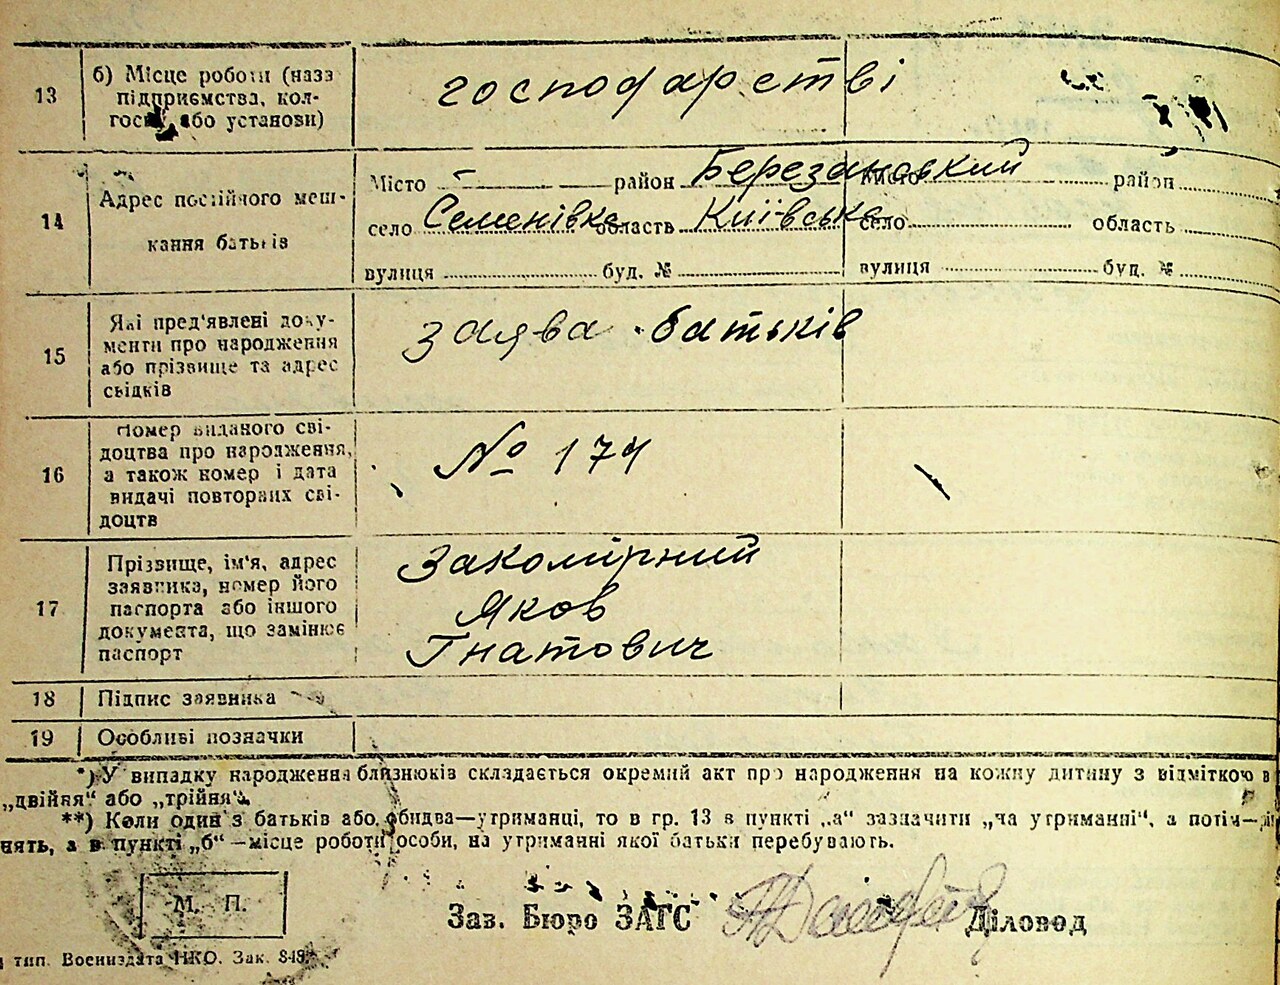 13
б) Місце роботи (назва
підприємства, кол-
госпу або установи)
господарстві
14
Адрес постійного меш-
кання батьків
Місто — район Березановский Місто район
село Семенівка область Київська село область
вулиця буд. № вулиця буд. №
15
Які пред'явлені доку-
менти про народження
або прізвище та адрес
свідків
заява батьків
16
Номер виданого сві-
доцтва про народження,
а також номер і дата
видачі повторних сві-
доцтв
№ 174
17
Прізвище, ім'я, адрес
заявника, номер його
паспорта або іншого
документа, що замінює
паспорт
Закомірний
Яков
Гнатович
18 Підпис заявника
19 Особливі позначки
*) У випадку народження близнюків складається окремий акт про народження на кожну дитину з відміткою в
„двійня“ або „трійня“.
**) Коли один з батьків або обидва—утриманці, то в гр. 13 в пункті „а“ зазначити „на утриманні“, а потім—
нять, а в пункті „б“—місце роботи особи, на утриманні якої батьки перебувають.
М. П.
Зав. Бюро ЗАГС Діловод
тип. Воениздата НКО. Зак. 848.